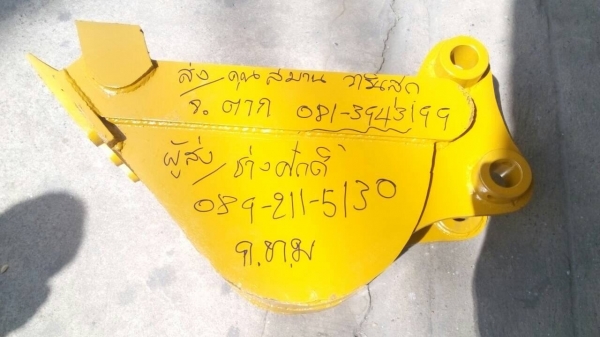 ส่ง/คุณสมาน วารีเสด
จ.ตาก 081-3943199
ผู้ส่ง/ช่างศักดิ์
089-211-5130